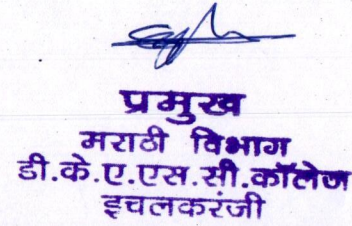 प्रमुख
मराठी विभाग
डी.के.ए.एस.सी.कॉलेज
इचलकरंजी